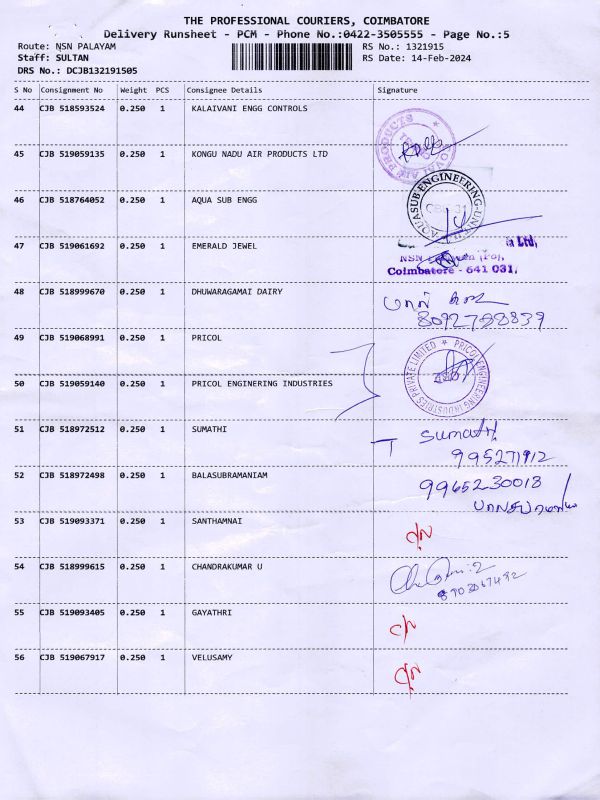 THE PROFESSIONAL COURIERS, COIMBATORE
Delivery Runsheet - PCM - Phone No.:0422-3505555 - Page No.:5
Route: NSN PALAYAM
RS No.: 1321915
Staff: SULTAN
RS Date: 14-Feb-2024
DRS No.: DCJB132191505
S No Consignment No Weight PCS Consignee Details Signature
44 CJB 518593524 0.250 1 KALAIVANI ENGG CONTROLS
45 CJB 519059135 0.250 1 KONGU NADU AIR PRODUCTS LTD
AIR PRODUCTS
46 CJB 518764052 0.250 1 AQUA SUB ENGG
AQUASUB ENGINEERING-UNIT
47 CJB 519061692 0.250 1 EMERALD JEWEL
Ltd,
NSN
Coimbatore - 641 031.
48 CJB 518999670 0.250 1 DHUWARAGAMAI DAIRY
8092788839
49 CJB 519068991 0.250 1 PRICOL
50 CJB 519059140 0.250 1 PRICOL ENGINERING INDUSTRIES
PRICOL ENGINEERING INDUSTRIES PRIVATE LIMITED
51 CJB 518972512 0.250 1 SUMATHI
Sumathi
52 CJB 518972498 0.250 1 BALASUBRAMANIAM
9965230018
53 CJB 519093371 0.250 1 SANTHAMNAI
54 CJB 518999615 0.250 1 CHANDRAKUMAR U
55 CJB 519093405 0.250 1 GAYATHRI
56 CJB 519067917 0.250 1 VELUSAMY